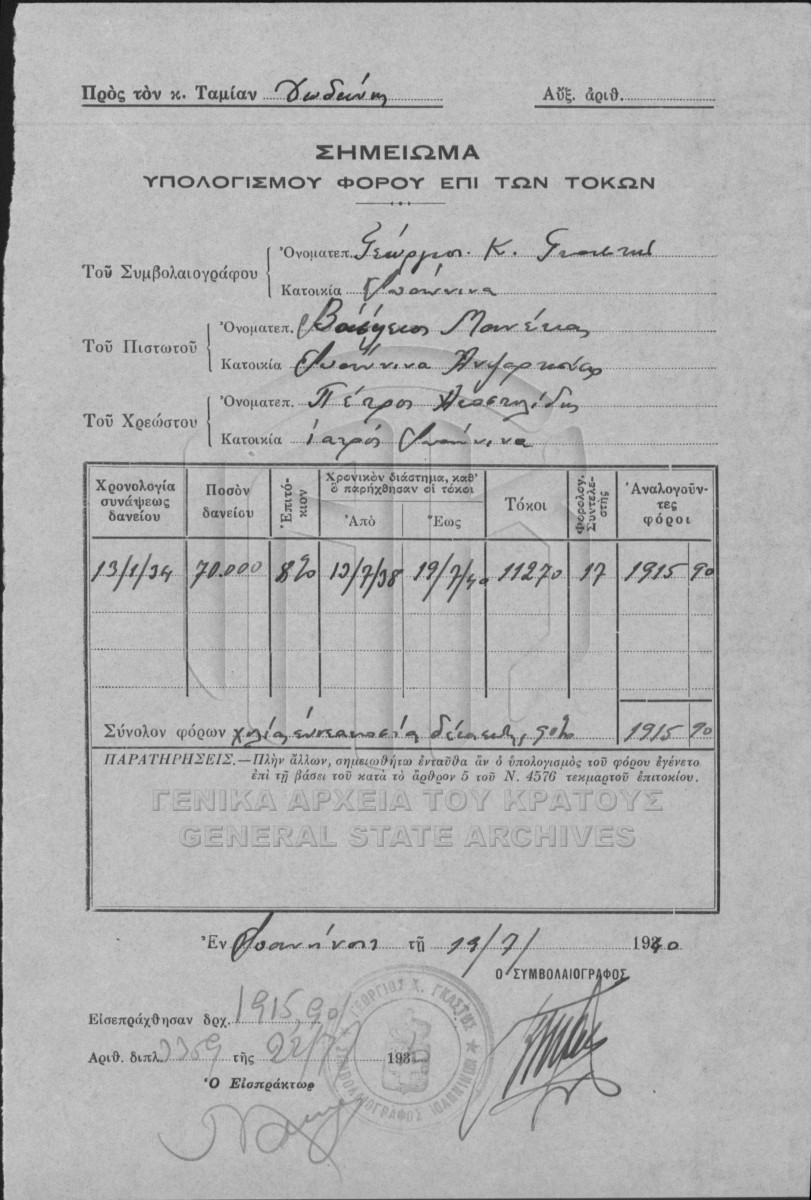 Πρὸς τὸν κ. Ταμίαν Δωδώνης Αὔξ. ἀριθ.
ΣΗΜΕΙΩΜΑ
ΥΠΟΛΟΓΙΣΜΟΥ ΦΟΡΟΥ ΕΠΙ ΤΩΝ ΤΟΚΩΝ
Τοῦ Συμβολαιογράφου
Ὀνοματεπ. Γεώργιος Κ.
Κατοικία Ἰωάννινα
Τοῦ Πιστωτοῦ
Ὀνοματεπ. Βασίλειος
Κατοικία Ἰωάννινα
Τοῦ Χρεώστου
Ὀνοματεπ. Πέτρος
Κατοικία ἰατρός Ἰωάννινα
Χρονολογία συνάψεως δανείου
Ποσὸν δανείου
Ἐπιτόκιον
Χρονικὸν διάστημα, καθ' ὃ παρήχθησαν οἱ τόκοι
Ἀπὸ
Ἕως
Τόκοι
Φορολογ. Συντελεστὴς
Ἀναλογοῦντες φόροι
13/1/34 70.000 8% 19/7/38 19/7/40 11270 17 1915 90
Σύνολον φόρων χίλια ἐννεακόσια δέκα πέντε, 90% 1915 90
ΠΑΡΑΤΗΡΗΣΕΙΣ.—Πλὴν ἄλλων, σημειωθήτω ἐνταῦθα ἂν ὁ ὑπολογισμὸς τοῦ φόρου ἐγένετο
ἐπὶ τῇ βάσει τοῦ κατὰ τὸ ἄρθρον 5 τοῦ Ν. 4576 τεκμαρτοῦ ἐπιτοκίου.
ΓΕΝΙΚΑ ΑΡΧΕΙΑ ΤΟΥ ΚΡΑΤΟΥΣ
GENERAL STATE ARCHIVES
Ἐν Ἰωαννίνοις τῇ 19/7/ 1940
Ο ΣΥΜΒΟΛΑΙΟΓΡΑΦΟΣ
Εἰσεπράχθησαν δρχ. 1915,90
Ἀριθ. διπλ. 3359 τῆς 22/7 193
Ὁ Εἰσπράκτωρ
ΓΕΩΡΓΙΟΣ Χ. ΓΚΑΣΤΗΣ
ΣΥΜΒΟΛΑΙΟΓΡΑΦΟΣ ΙΩΑΝΝΙΝΩΝ